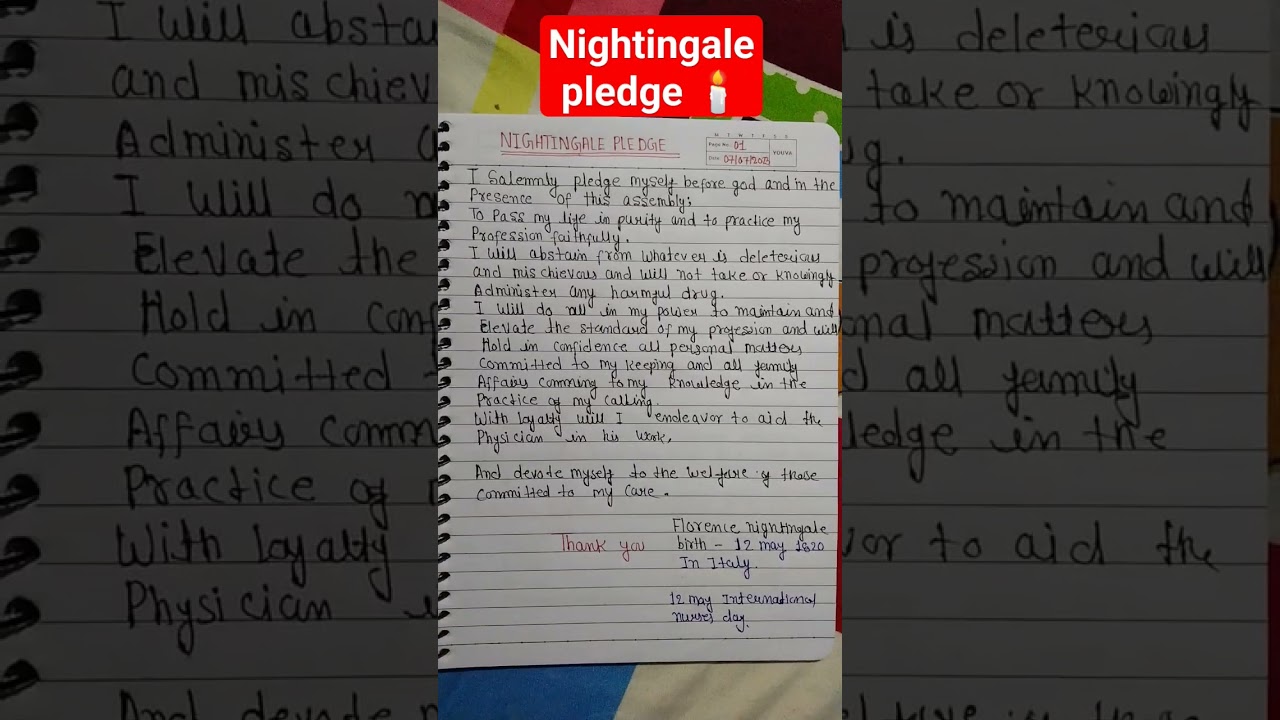 Nightingale
pledge
NIGHTINGALE PLEDGE
M T W T F S S
Page No.: 01
Date: 07/07/2023
YOUVA
I Solemnly pledge myself before god and in the
Presence of this assembly;
To Pass my life in purity and to practice my
Profession faithfully.
I will abstain from whatever is deletericus
and mischievous and will not take or knowingly
Administer any harmful drug.
I will do all in my power to maintain and
Elevate the standard of my profession and will
Hold in confidence all personal matters
Committed to my keeping and all family
Affairs comming to my knowledge in the
Practice of my calling.
With loyalty will I endeavor to aid the
Physician in his work,
And devote myself to the welfare of those
committed to my care.
Thank you
Florence nightingale
birth - 12 may 1820
In Italy.
12 may International
nurses day.